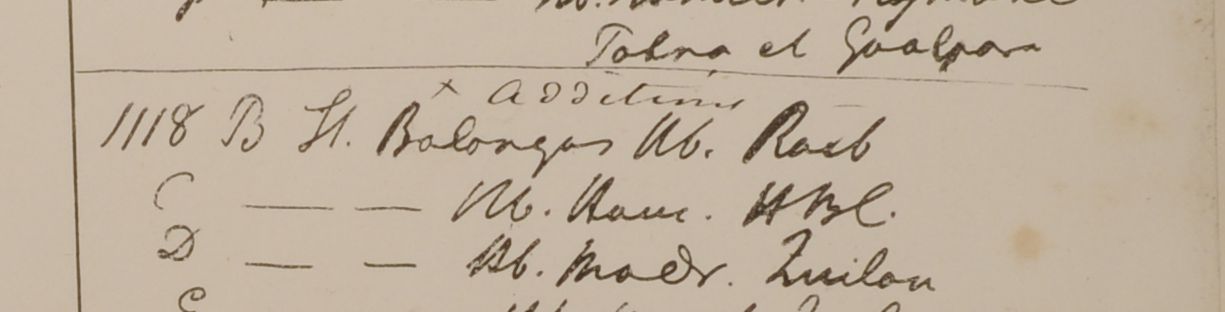 et Goalpara
Additions
1118 B St. Balangas Hb. Roxb
C — — Hb. Ham. HBC.
D — — Hb. Madr. Quilon